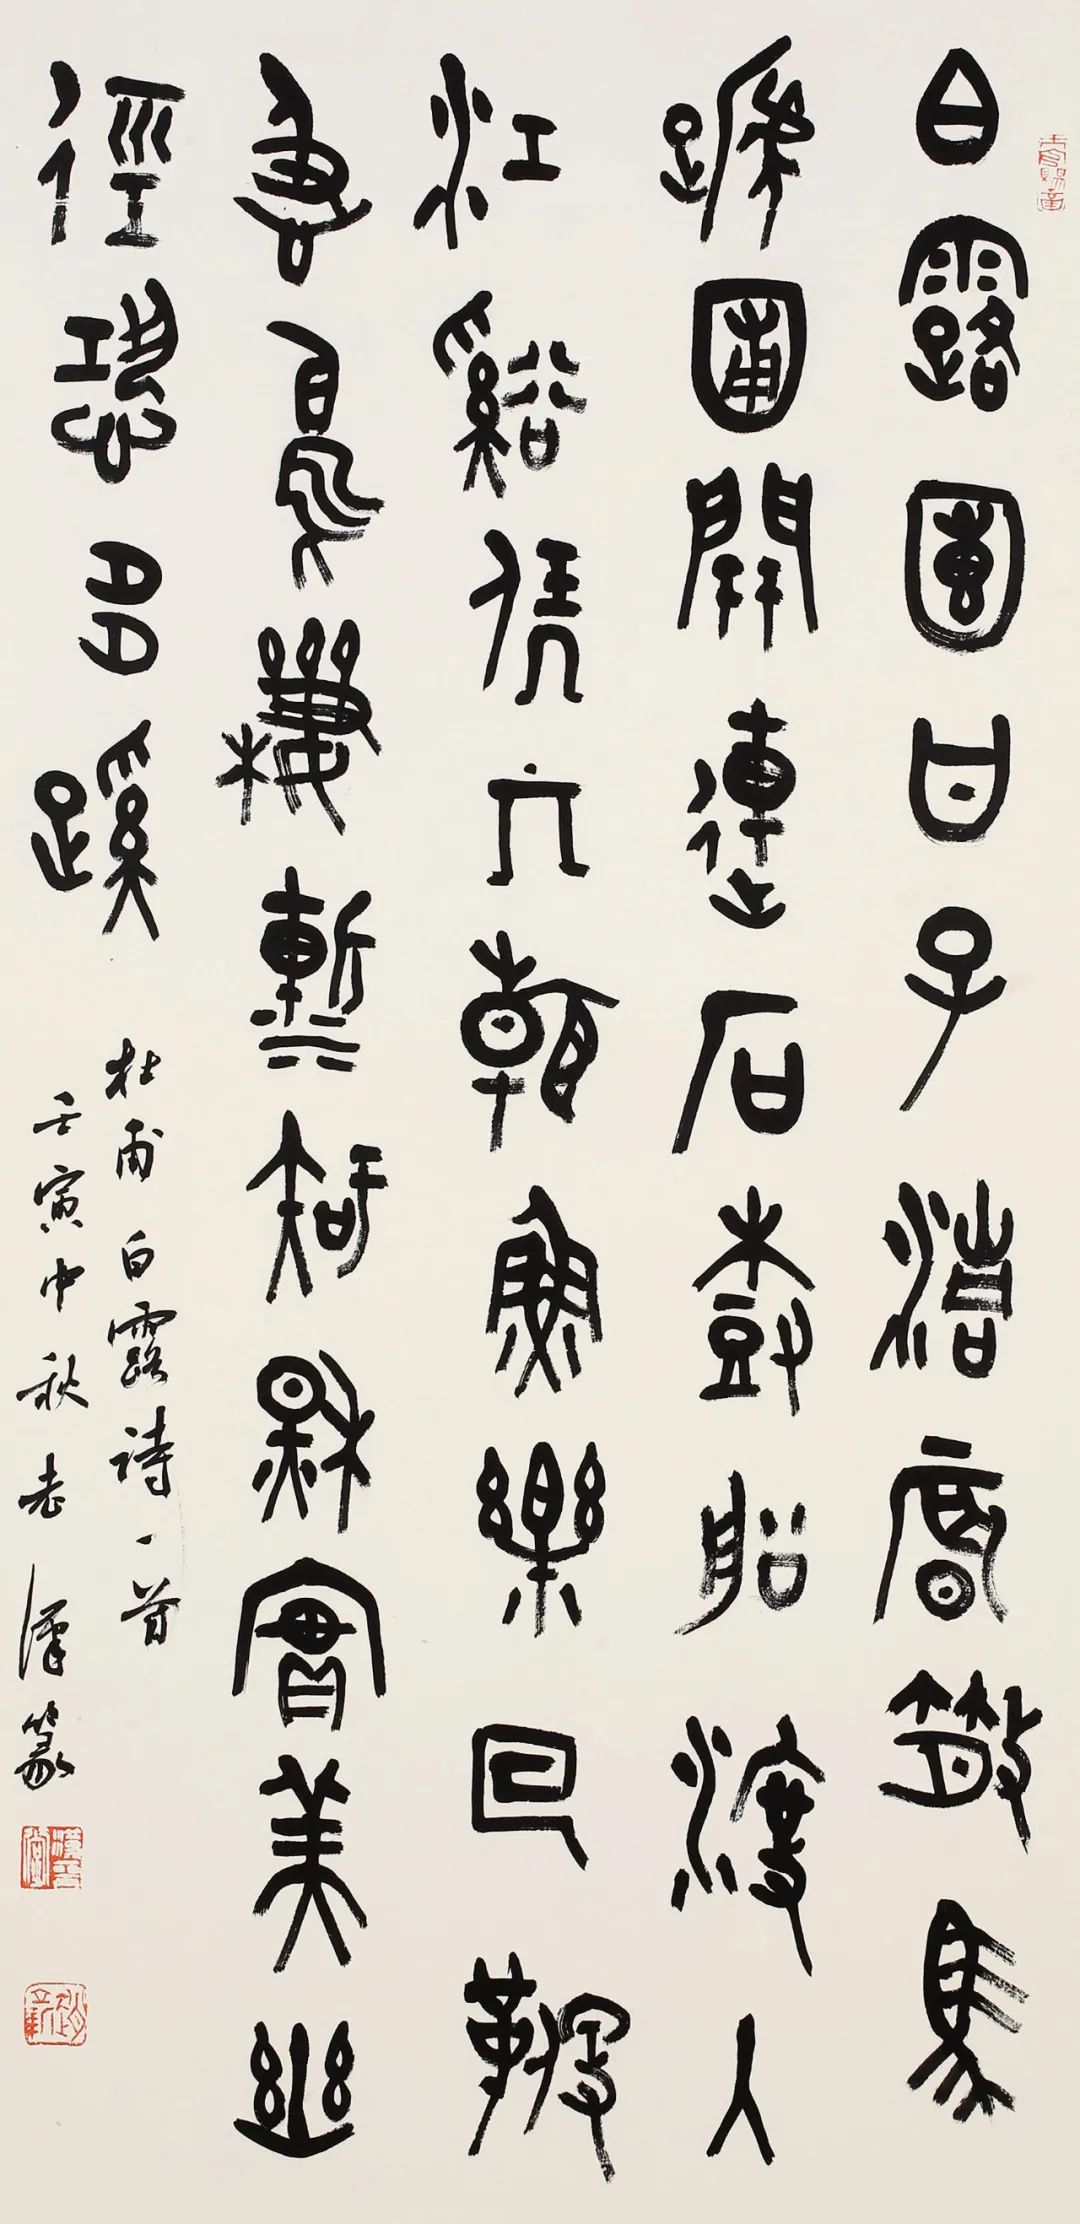 白露團甘子清晨散馬
蹄圃開連石樹船渡入
江谿凭几看魚樂回鞭
急鳥棲漸知秋實美幽
徑恐多蹊
杜甫白露詩一首
壬寅中秋老漢篆